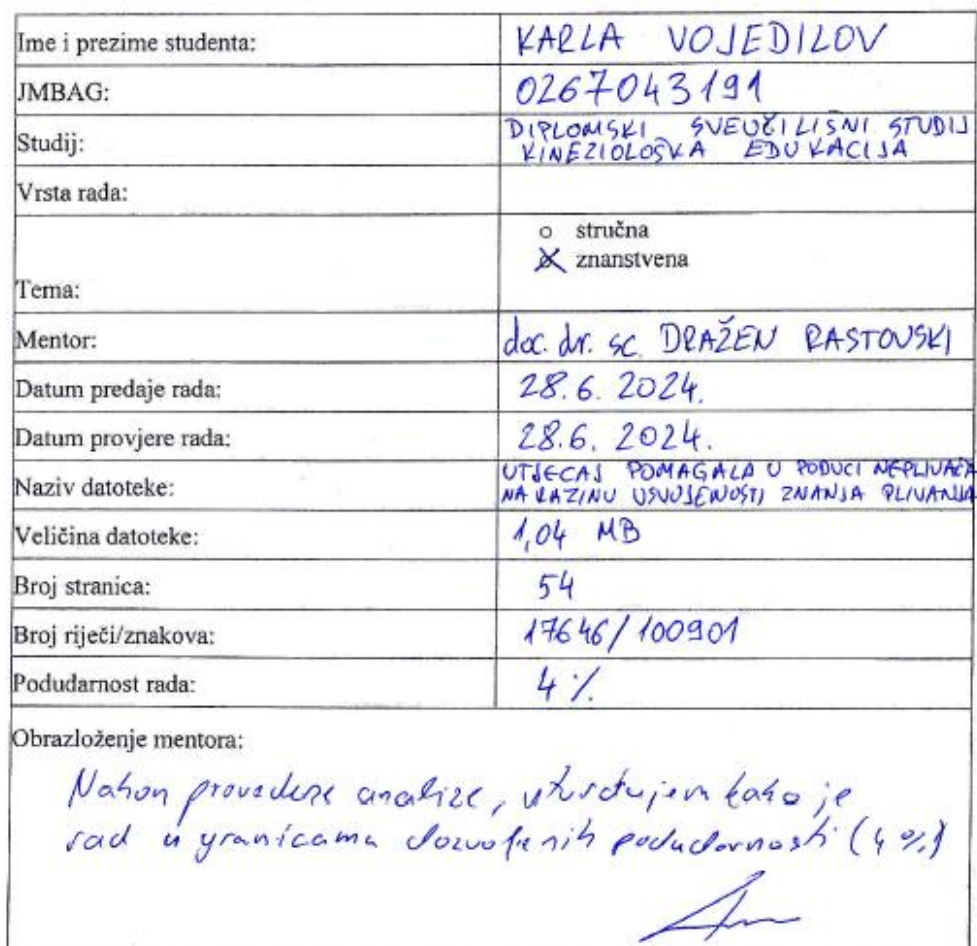 Ime i prezime studenta: KARLA VOJEDILOV
JMBAG: 0267043191
Studij: DIPLOMSKI SVEUČILIŠNI STUDIJ
KINEZIOLOŠKA EDUKACIJA
Vrsta rada:
o stručna
o znanstvena
Tema:
Mentor: doc. dr. sc. DRAŽEN RASTOVSKI
Datum predaje rada: 28.6.2024.
Datum provjere rada: 28.6.2024.
Naziv datoteke: UTJECAJ POMAGALA U PODUCI NEPLIVAČA
NA RAZINU USVOJENOSTI ZNANJA PLIVANJA
Veličina datoteke: 1,04 MB
Broj stranica: 54
Broj riječi/znakova: 17646/100901
Podudarnost rada: 4 %
Obrazloženje mentora:
Nakon provedene analize, utvrđujem kako je
rad u granicama dozvoljenih podudarnosti (4 %)